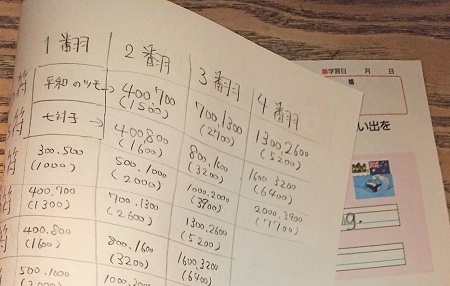 1翻 2翻 3翻 4翻
符 平和のツモ→ 400,700 700,1300 1300,2600
(1500) (2700) (5200)
符 七対子 → 400,800 800,1600 1600,3200
(1600) (3200) (6400)
符 300,500 500,1000 1000,2000 2000,3900
(1000) (2000) (3900) (7700)
符 400,700 700,1300 1300,2600
(1300) (2600) (5200)
符 400,800 800,1600 1600,3200
(1600) (3200) (6400)
500,1000
学習日 月 日
い出を